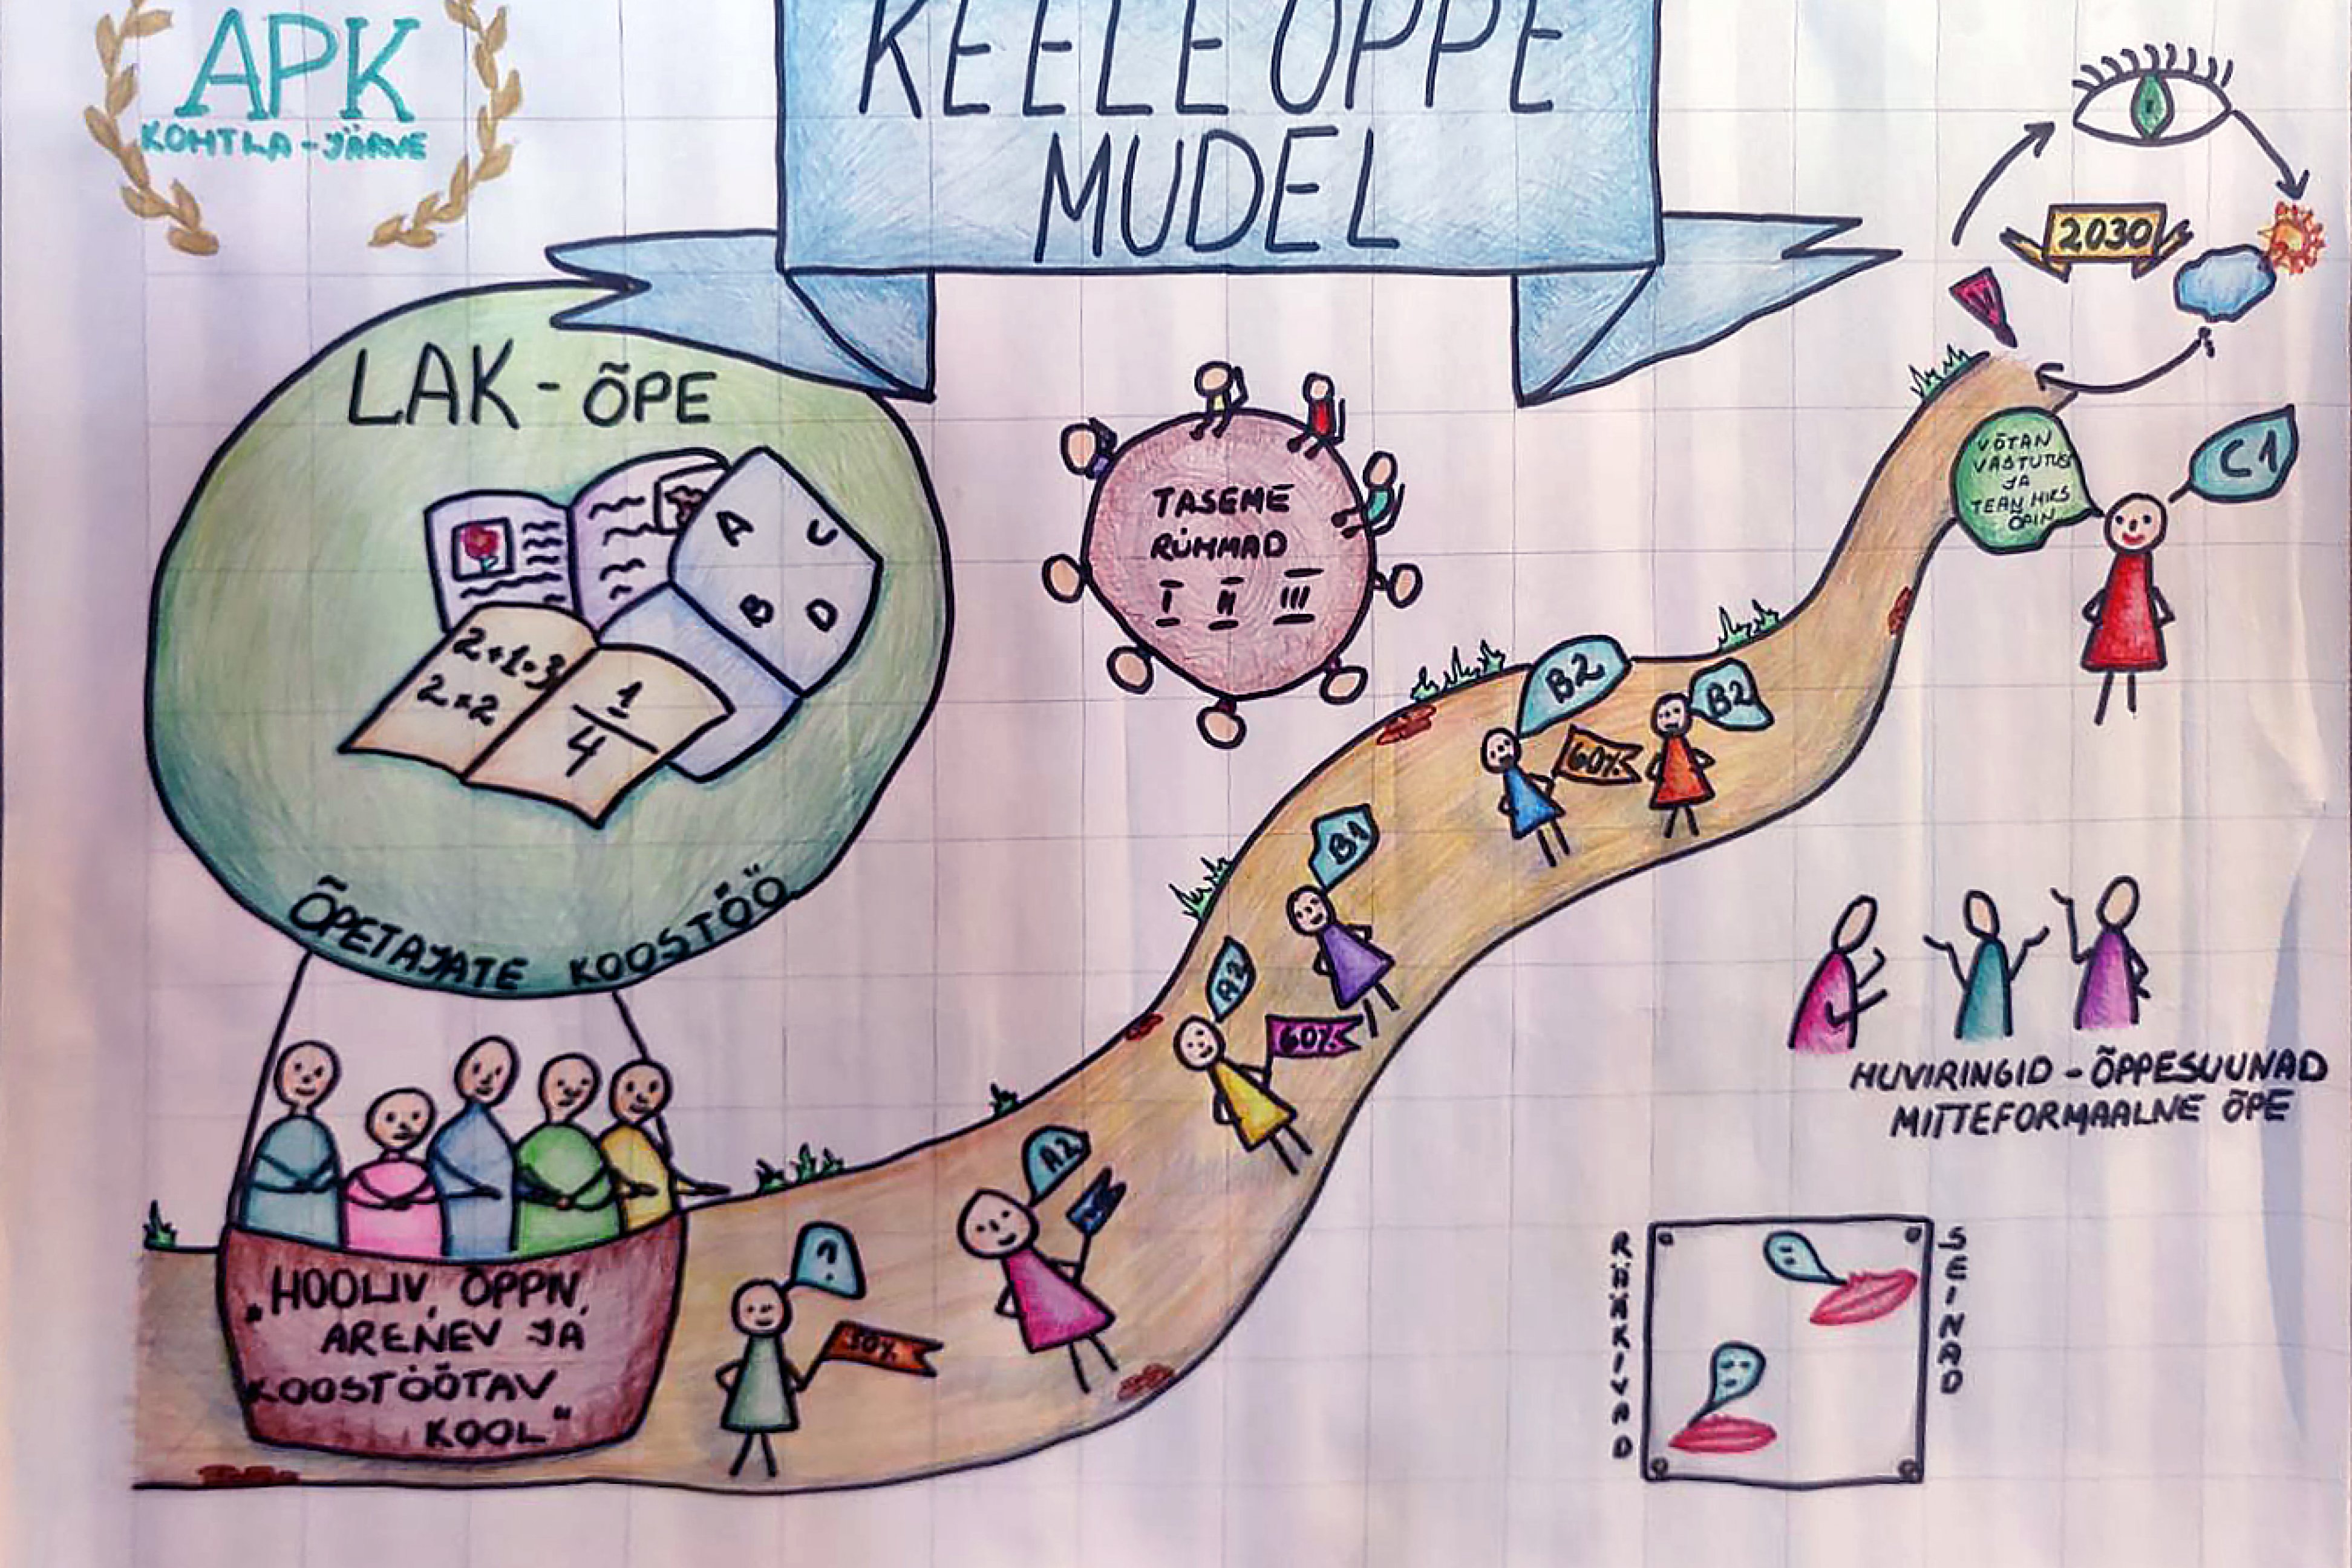 APK
KOHTLA-JÄRVE
KEELEÕPPE
MUDEL
2030
LAK-ÕPE
A C
B D
2+1=3
2×2
1
4
ÕPETAJATE KOOSTÖÖ
TASEME
RÜHMAD
I II III
VÕTAN
VASTUTUS
JA
TEAN MIKS
ÕPIN
C1
B2
B2
60%
B1
A2
60%
A2
?
30%
„HOOLIV, ÕPPIV,
ARENEV JA
KOOSTÖÖTAV
KOOL“
HUVIRINGID - ÕPPESUUNAD
MITTEFORMAALNE ÕPE
RÄÄKIVAD
SEINAD